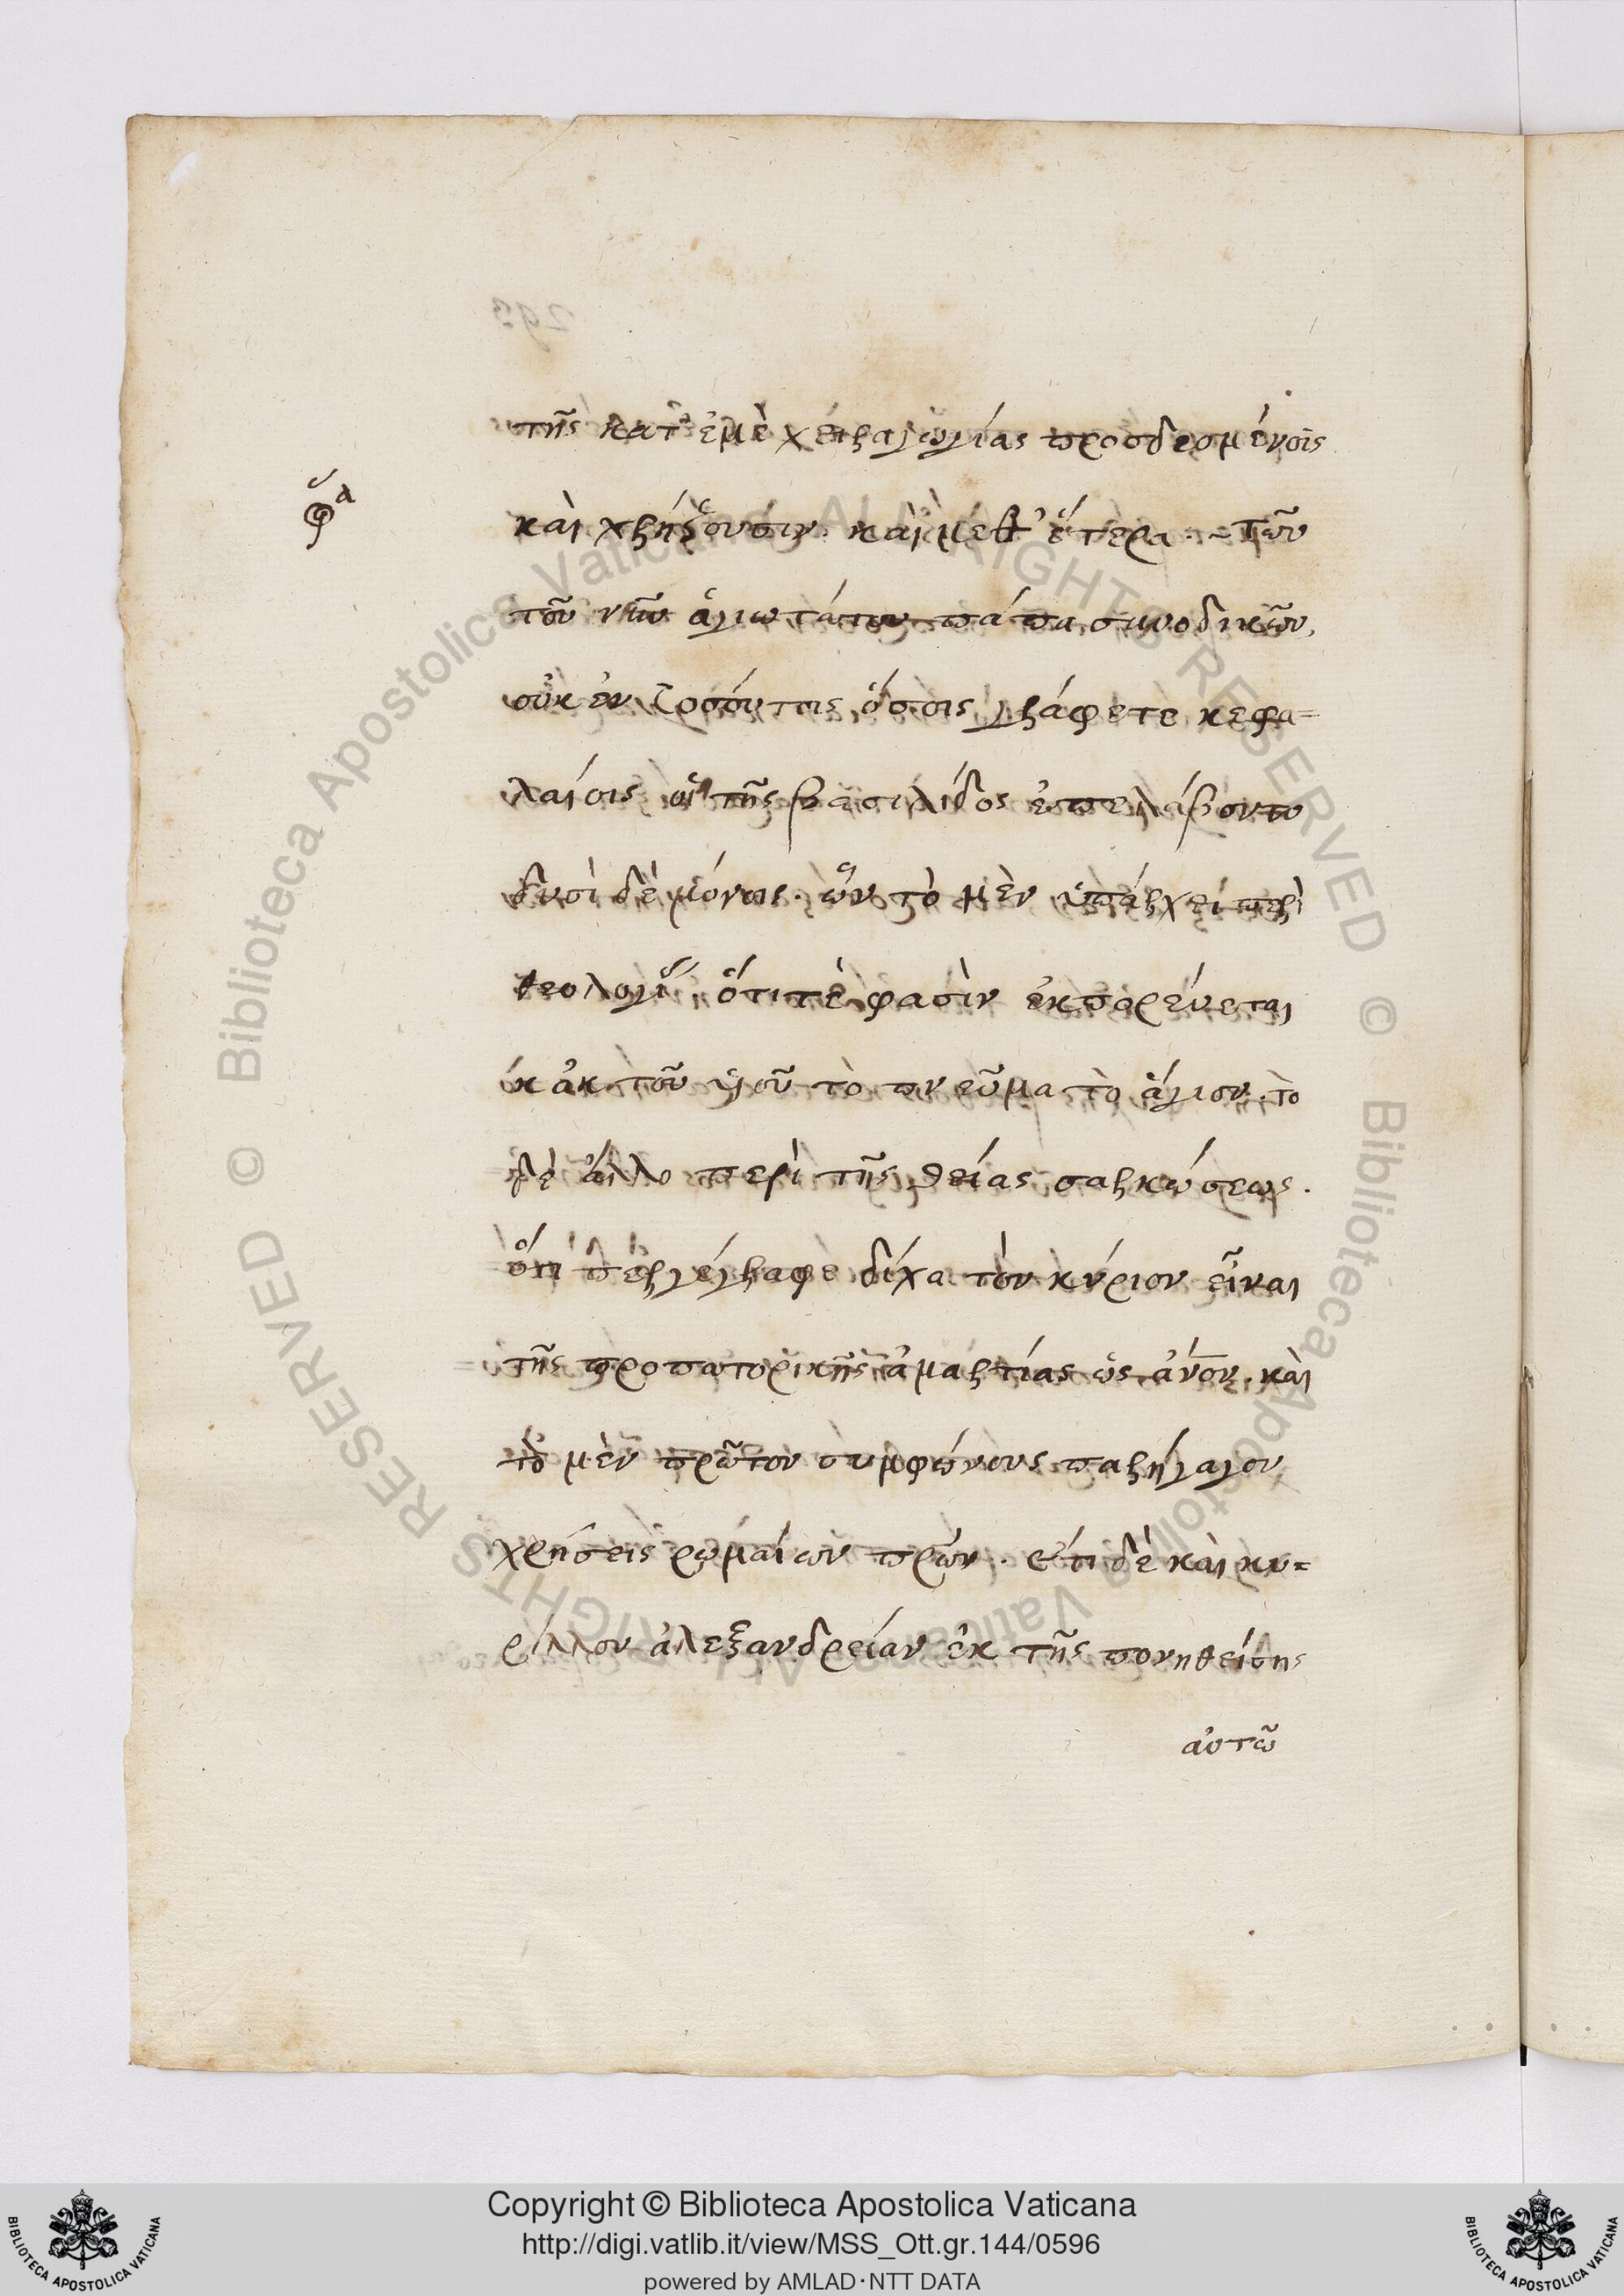 293
τῆς κατ' ἐμὲ χειραγωγίας προσδεομένοις
καὶ χρήζουσιν. καὶ μεθ' ἕτερα. ~ τῶν
τοῦ νῦν ἁγιωτάτου πάπα συνοδικῶν,
οὐκ ἐν τοσούτοις ὅσοις γράφετε κεφα=
λαίοις οἱ τῆς βασιλίδος ἐπελάβοντο
δυσὶ δὲ μόνοις. ὧν τὸ μὲν ὑπάρχει περὶ
θεολογί, ὅτι τέ φασὶν ἐκπορεύεται
κἀκ τοῦ υἱοῦ τὸ πνεῦμα τὸ ἅγιον. τὸ
δὲ ἄλλο περὶ τῆς θείας σαρκώσεως.
ὅτι γέγραφε δίχα τὸν κύριον εἶναι
τῆς προπατορικῆς ἁμαρτίας ὡς ἀνον. καὶ
τὸ μὲν πρῶτον συμφώνους παρήγαγον
χρήσεις ρωμαίων πρων. ἔτι δὲ καὶ κυ=
ρίλλου ἀλεξανδρείαν ἐκ τῆς πονηθείσης
αὐτῶ
Copyright © Biblioteca Apostolica Vaticana
http://digi.vatlib.it/view/MSS_Ott.gr.144/0596
powered by AMLAD·NTT DATA
BIBLIOTECA APOSTOLICA VATICANA
BIBLIOTECA APOSTOLICA VATICANA
© Biblioteca Apostolica Vaticana ALL RIGHTS RESERVED © Biblioteca Apostolica Vaticana ALL RIGHTS RESERVED